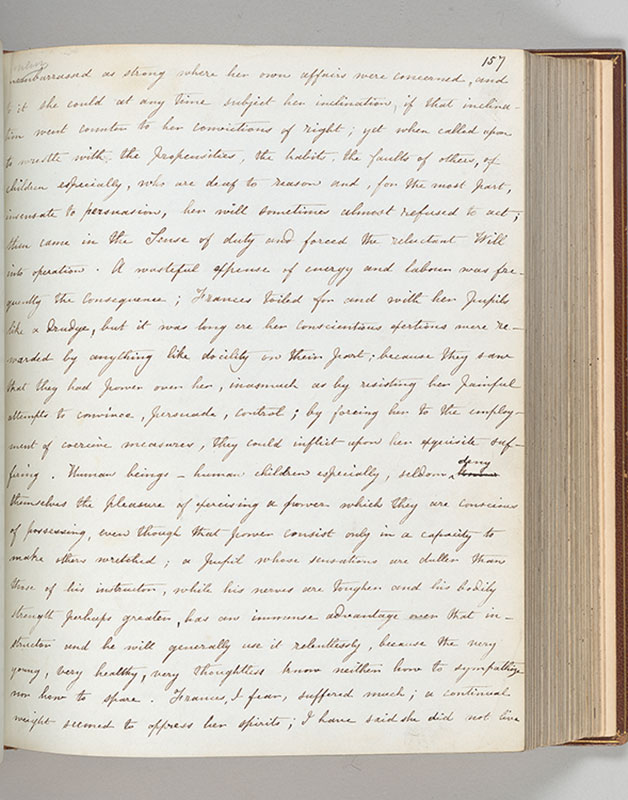 157
unembarrassed as strong where her own affairs were concerned, and
to it she could at any time subject her inclination, if that inclina-
tion went counter to her convictions of right; yet when called upon
to wrestle with the propensities, the habits, the faults of others, of
children especially, who are deaf to reason and, for the most part,
insensate to persuasion, her will sometimes almost refused to act;
then came in the Sense of duty and forced the reluctant Will
into operation. A wasteful expense of energy and labour was fre-
quently the consequence; Frances toiled for and with her Pupils
like a Drudge, but it was long ere her conscientious exertions were re-
warded by anything like docility on their part; because they saw
that they had Power over her, inasmuch as by resisting her painful
attempts to convince, persuade, control; by forcing her to the employ-
ment of coercive measures, they could inflict upon her exquisite suf-
fering. Human beings - human children especially, seldom deny
themselves the pleasure of exercising a power which they are conscious
of possessing, even though that power consist only in a capacity to
make others wretched; a Pupil whose sensations are duller than
those of his instructor, while his nerves are tougher and his bodily
strength perhaps greater, has an immense advantage over that in-
structor and he will generally use it relentlessly, because the very
young, very healthy, very thoughtless know neither how to sympathize
nor how to spare. Frances, I fear, suffered much; a continual
weight seemed to oppress her spirits; I have said she did not live